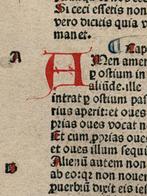 Si ceci essetis non
vero dicitis quia v
manet.
Cap
A
AMen amen
p ostium in
aliunde. ille
intrat p ostium pas
rius aperit: et oues
prias oues vocat n
Et cum pprias oue
et oues illum sequū
Alienū autem non
B
ab eo: qr non noueri
puerbiū dixit eis i